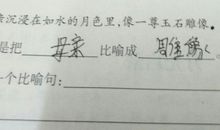 沉浸在如水的月色里,像一尊玉石雕像。
是把 母亲 比喻成
一个比喻句: